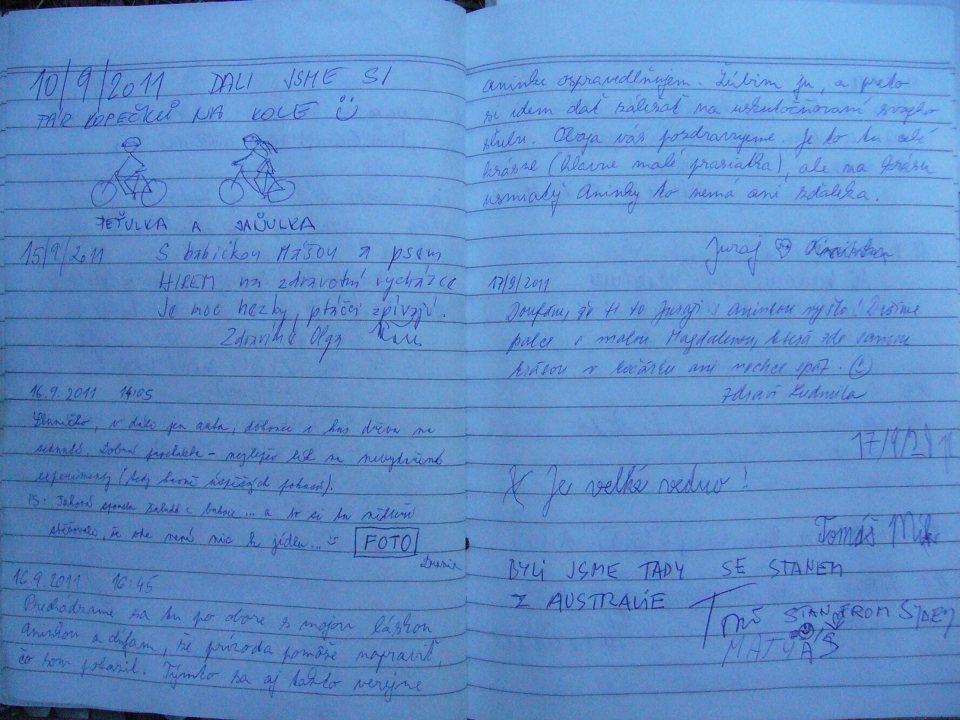 10/9/2011 DALI JSME SI
PÁR KOPEČKŮ NA KOLE
PEŤULKA A JAŇULKA
15/9/2011 S babičkou Mášou a psem
HIREM na zdravotní vycházce
Je moc hezky, ptáčci zpívají.
Zdravíme Olga
16.9.2011 14:05
v dáli jen auta, dokonce i kus dřeva na
sednutí. Dobrá procházka – nejlepší lék na
experimenty (tedy kromě úspěšných pokusů).
PS: Taková spousta žaludů a bukvic... a to si tu někteří
stěžovali, že zde není nic k jídlu...
FOTO
16.9.2011 16:45
Prechádzame sa tu po obore s mojou láskou
Aninkou a dúfam, že príroda pomôže napraviť,
čo som pokazil. Týmto sa aj takto verejne
Aninke ospravedlňujem. Ľúbim ju, a preto
si idem dať záležať na uskutočňovaní svojho
sľubu. Obaja vás pozdravujeme. Je to tu celé
krásne (hlavne malé prasiatka), ale na krásu
usmiatej Aninky to nemá ani zďaleka.
Juraj
17/9/2011
Doufám, že ti to Juraji s Aninkou vyšlo! Držíme
palce s malou Magdalenou, která zde samou
krásou v kočárku ani nechce spát.
Zdraví Ludmila
17/9/2011
Je velké vedro!
Tomáš
BYLI JSME TADY SE STANEM
Z AUSTRALIE
STAN FROM SYDNEY
MATYÁŠ